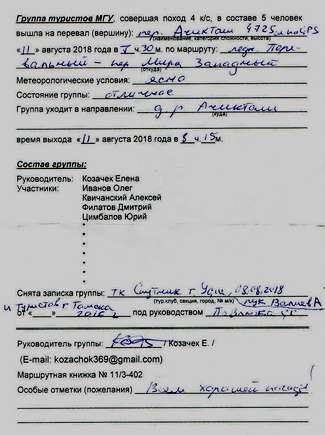 Группа туристов МГУ, совершая поход 4 к/с, в составе 5 человек
вышла на перевал (вершину): пер. Ачикташ 4725 м по GPS
(название, категория сложности, высота)
«11» августа 2018 года в 7 ч. 30 м. по маршруту: ледн.
- пер. Мира Западный
(откуда)
Метеорологические условия: ясно
Состояние группы: отличное
Группа уходит в направлении: д. р. Ачикташ
(куда)
время выхода «11» августа 2018 года в 8 ч. 15 м.
Состав группы:
Руководитель: Козачек Елена
Участники: Иванов Олег
Квичанский Алексей
Филатов Дмитрий
Цимбалов Юрий
Снята записка группы: ТК Спутник г. Уфа, 08.08.2018
(тур.клуб, секция, город, № м/к) рук Валиев А
и туристов г. Томска
от «___» 2016 г. под руководством
Руководитель группы: / Козачек Е. /
(E-mail: kozachok369@gmail.com)
Маршрутная книжка № 11/3-402
Особые отметки (пожелания) Всем хорошей погоды!